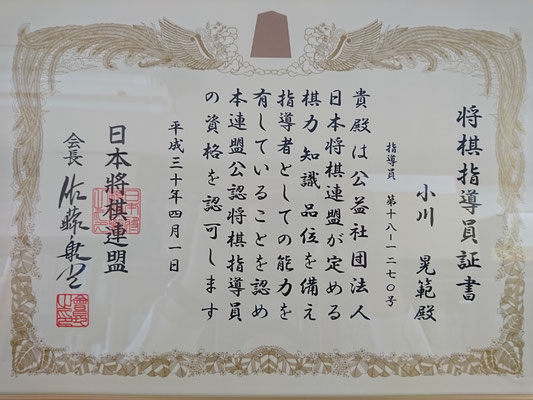 将棋指導員証書
小川 晃範殿
指導員 第十八ー一二七〇号
貴殿は公益社団法人
日本将棋連盟が定める
棋力 知識 品位を備え
指導者としての能力を
有していることを認め
本連盟公認将棋指導員
の資格を認可します
平成三十年四月一日
日本將棋連盟
会長 佐藤康光